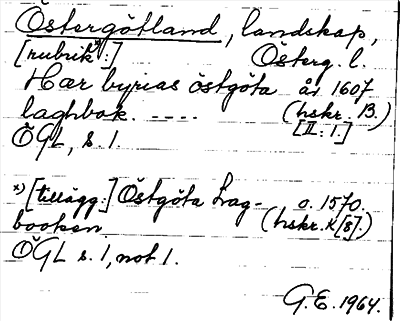 Östergötland, landskap,
[rubrik x):] Österg. l.
Hær byrias östgöta år 1607
laghbok. ---- (hskr. B.)
[II: 1.]
ÖGL, s. 1.
x) [tillägg:] Östgöta Lag- o. 1570.
booken. (hskr. K[8].)
ÖGL s. 1, not 1.
G.E. 1964.